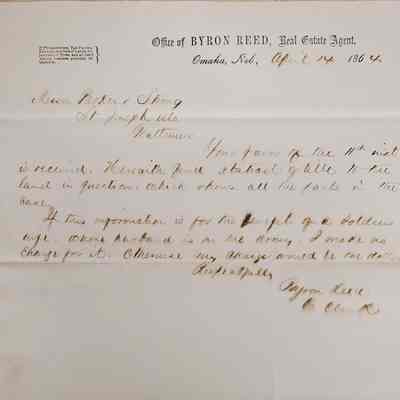 Office of BYRON REED, Real Estate Agent.
Omaha, Neb, April 14 1864.
St Joseph
Your favor of the 11th inst
is received. Herewith find abstract of title to the
land in question which shows all the facts in the
case,
If this information is for the benefit of a Soldiers
wife, whose husband is in the army, I make no
charge for it. Otherwise my charge would be one dollar
Respectfully
Byron Reed